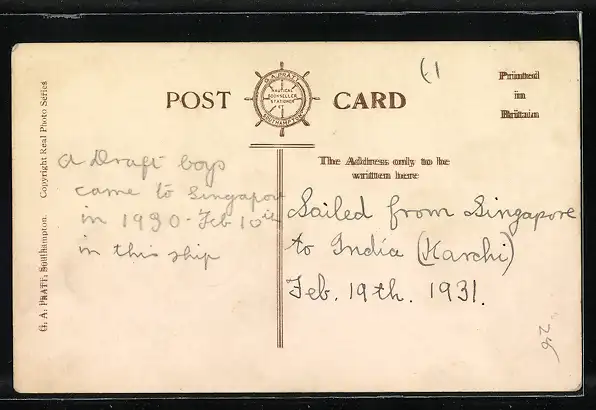 POST CARD
G. A. PRATT
NAUTICAL
BOOKSELLER
STATIONER
SOUTHAMPTON
61
Printed
in
Britain
The Address only to be
written here
G. A. PRATT, Southampton. Copyright Real Photo Series
a Draft boys
came to Singapore
in 1930 - Feb 10th
in this ship
Sailed from Singapore
to India (Karchi)
Feb. 19th. 1931.
26